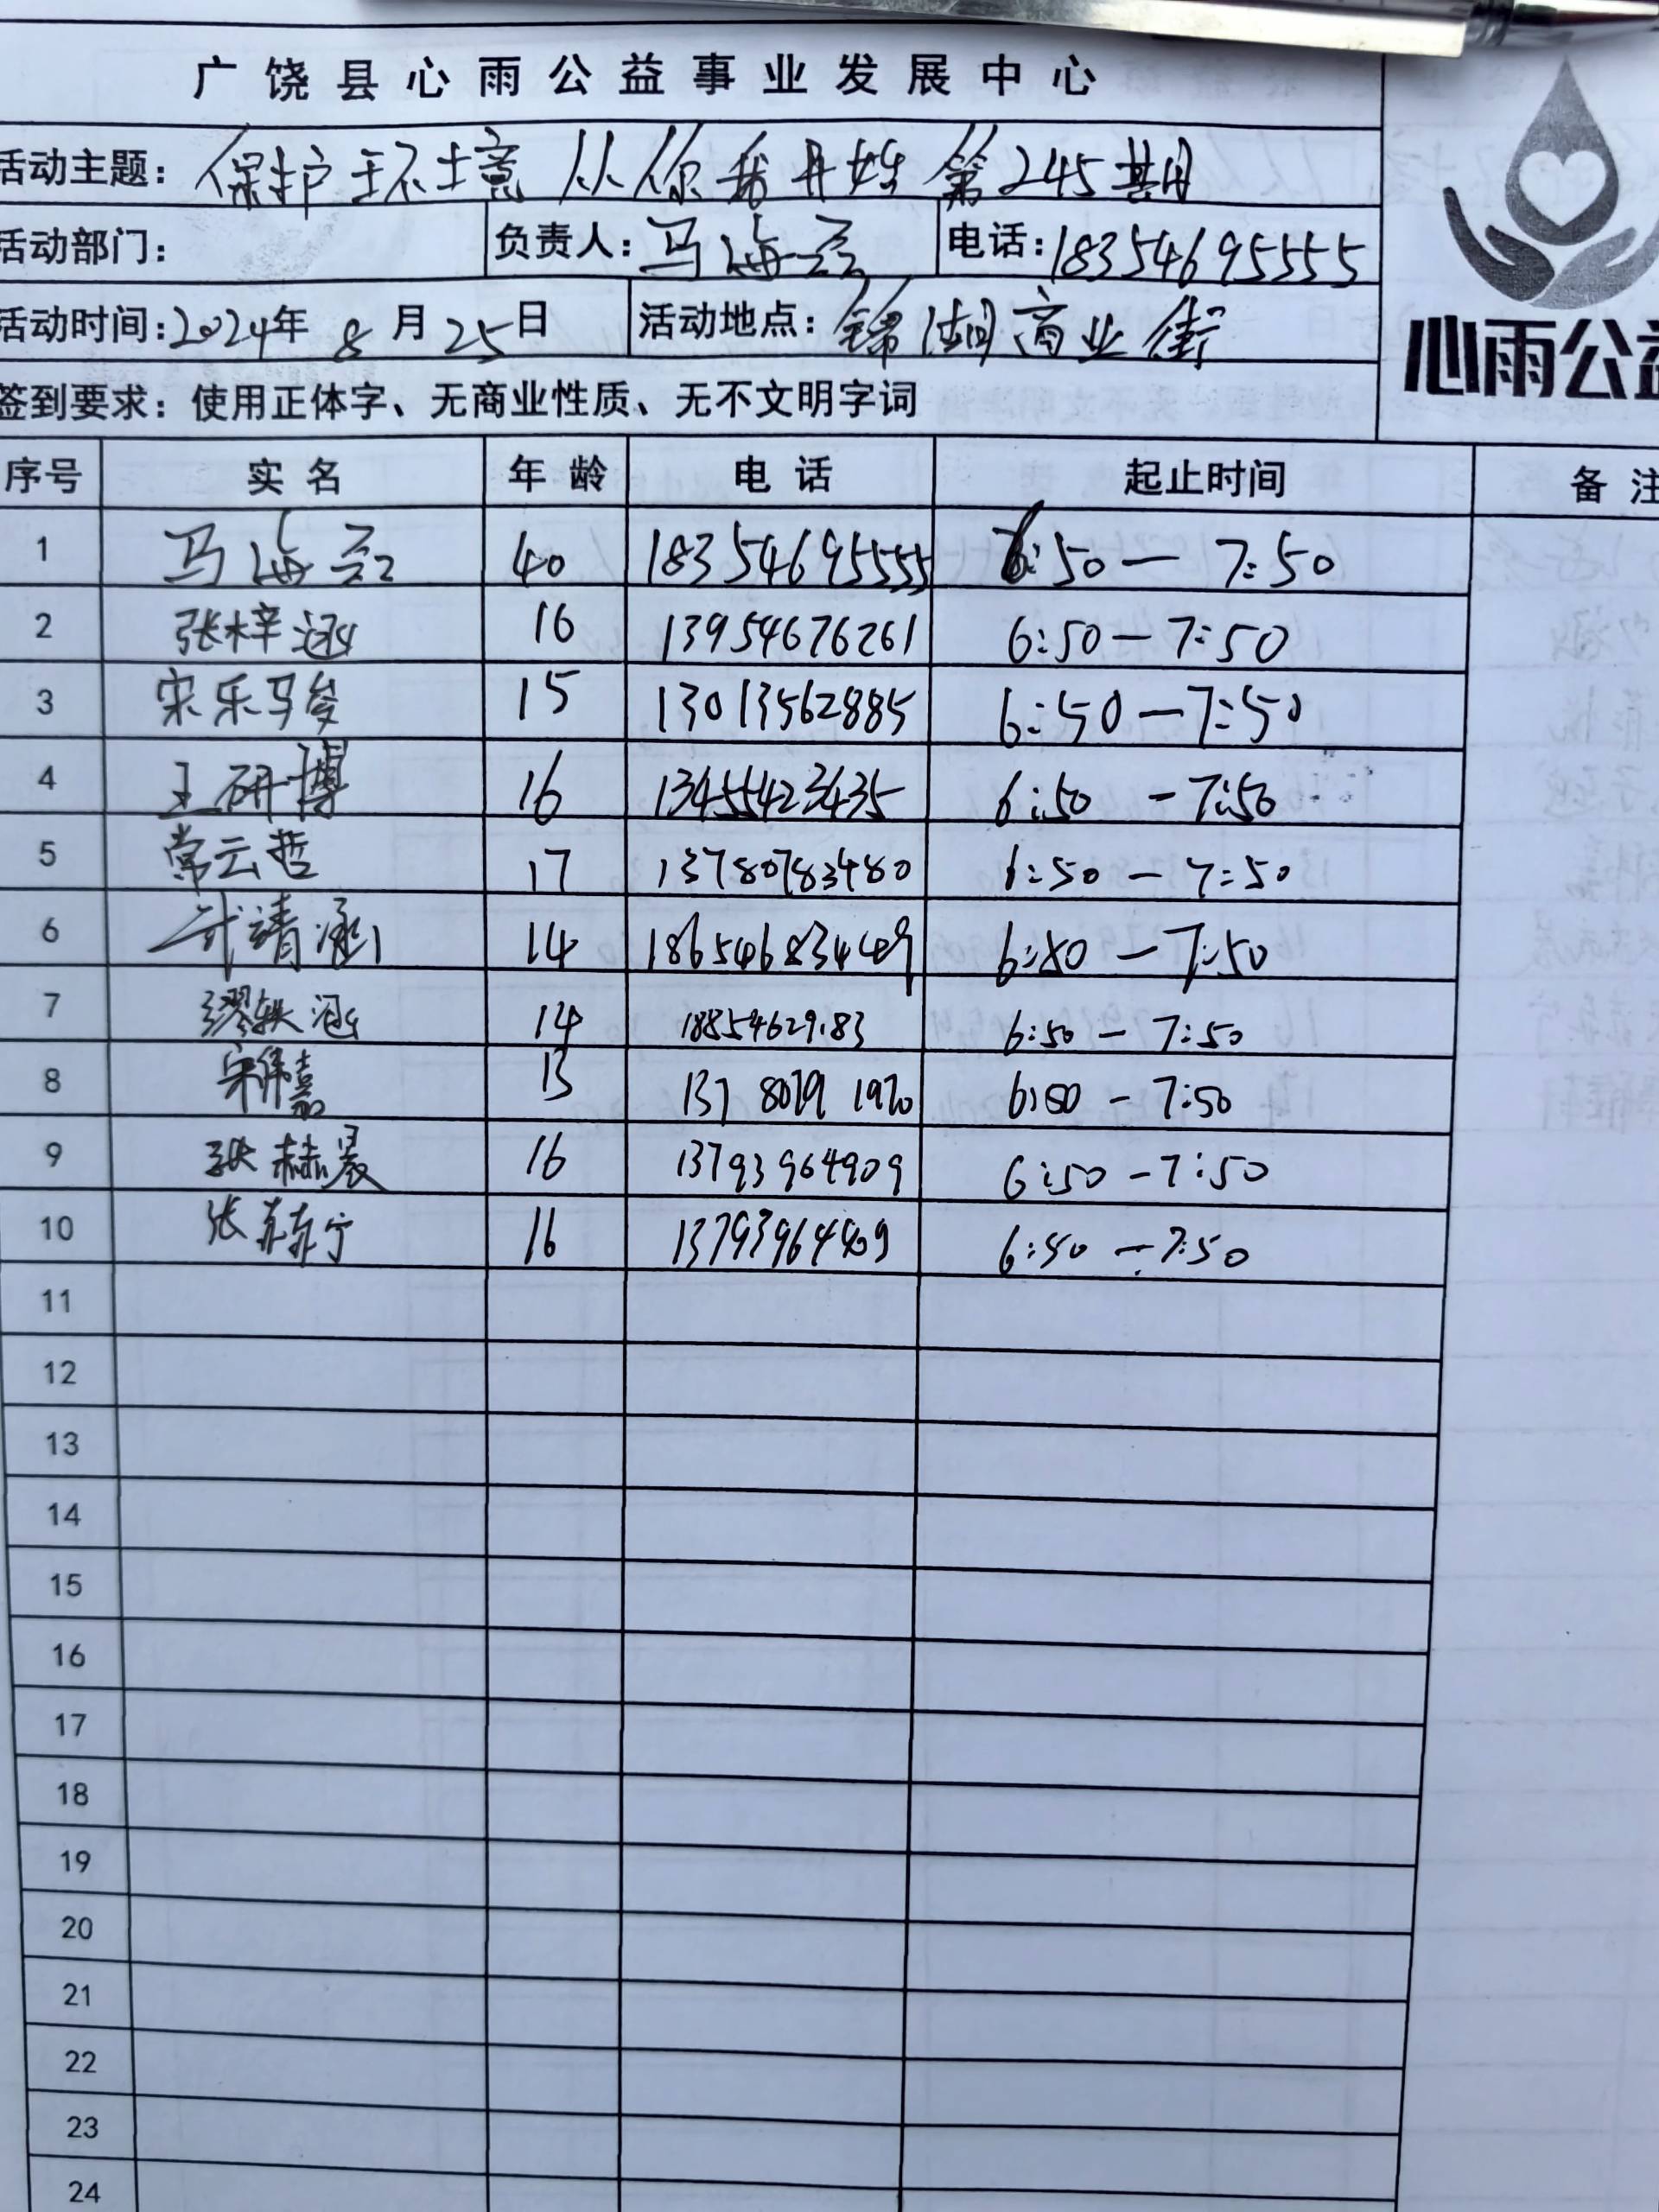 广饶县心雨公益事业发展中心
活动主题：保护环境 从你我开始 第245期
活动部门： 负责人：马海云 电话：18354695555
活动时间：2024年8月25日 活动地点：锦湖商业街
心雨公益
签到要求：使用正体字、无商业性质、无不文明字词
序号 实名 年龄 电话 起止时间 备注
1 马海云 40 18354695555 6:50—7:50
2 张梓涵 16 13954676261 6:50—7:50
3 宋乐骏 15 13013562885 6:50—7:50
4 王研博 16 13455423435 6:50—7:50
5 常云哲 17 13780783480 6:50—7:50
6 武清涵 14 18654683449 6:50—7:50
7 缪轶涵 14 6:50—7:50
8 宋伟嘉 13 6:50—7:50
9 张赫晨 16 13793964909 6:50—7:50
10 张苏宁 16 13793964909 6:50—7:50
11
12
13
14
15
16
17
18
19
20
21
22
23
24